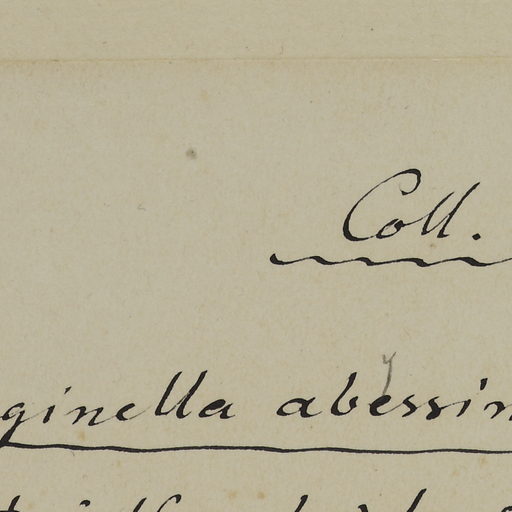 Coll.
ginella abessin